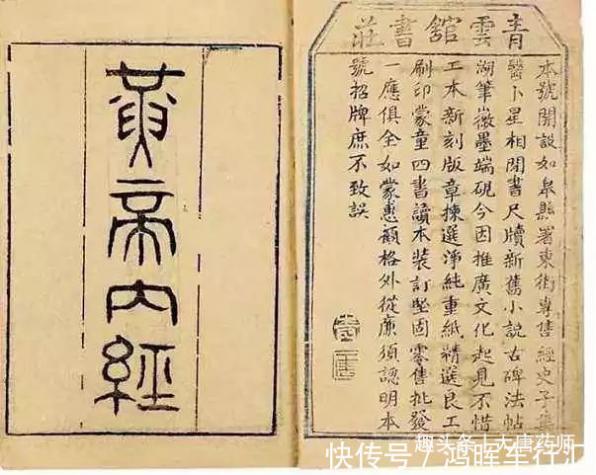 青雲舘書莊
本號開設如皋縣署東街專售經史子集
醫卜星相閒書尺牘新舊小說古碑法帖
湖筆徽墨端硯今因推廣文化起見不惜
工本新刻版章揀選淨純重紙精選良工
刷印蒙童四書讀本裝訂堅固零售批發
一應俱全如蒙惠顧格外從廉須認明本
號招牌庶不致誤
黃帝內經
趣头条 | 大唐药师
快传号/鸿晖车行汇